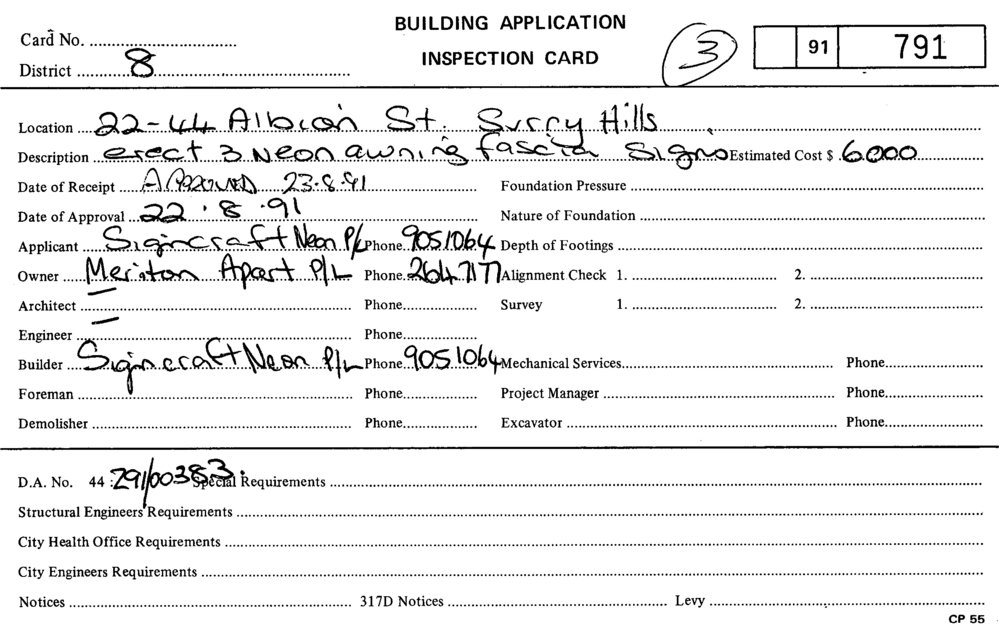 BUILDING APPLICATION
INSPECTION CARD
Card No.
District 8
3
91 791
Location 22-44 Albion St. Surry Hills
Description erect 3 Neon awning fascia Signs Estimated Cost $ 6000
Date of Receipt APPROVED 23.8.91 Foundation Pressure
Date of Approval 22.8.91 Nature of Foundation
Applicant Signcraft Neon P/L Phone 9051064 Depth of Footings
Owner Meriton Apart P/L Phone 2647177 Alignment Check 1. 2.
Architect — Phone Survey 1. 2.
Engineer — Phone
Builder Signcraft Neon P/L Phone 9051064 Mechanical Services Phone
Foreman Phone Project Manager Phone
Demolisher Phone Excavator Phone
D.A. No. 44 : Z91/00383. Special Requirements
Structural Engineers Requirements
City Health Office Requirements
City Engineers Requirements
Notices 317D Notices Levy
CP 55